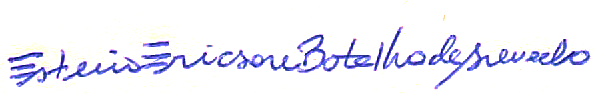 Estenio Ericson Botelho de Azevedo